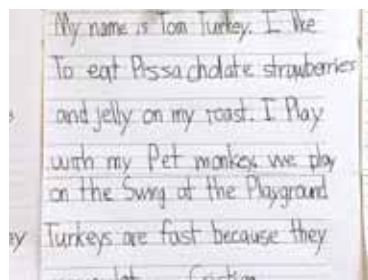 My name is Tom Turkey. I like
To eat Pissa cholate strawberries
and jelly on my roast. I Play
with my Pet monkey we play
on the Swing at the Playground
Turkeys are fast because they